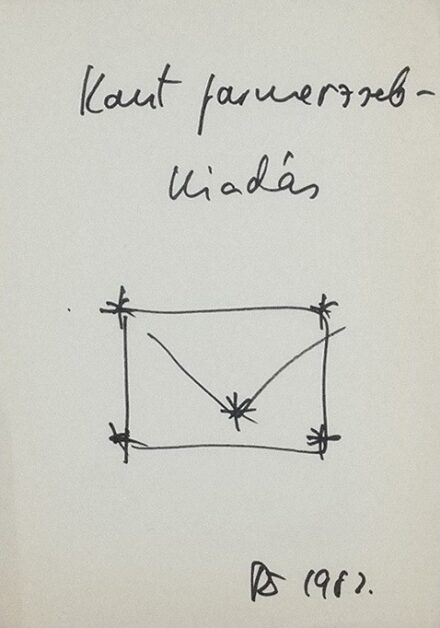 Kant farmerzseb-
kiadás
1982.